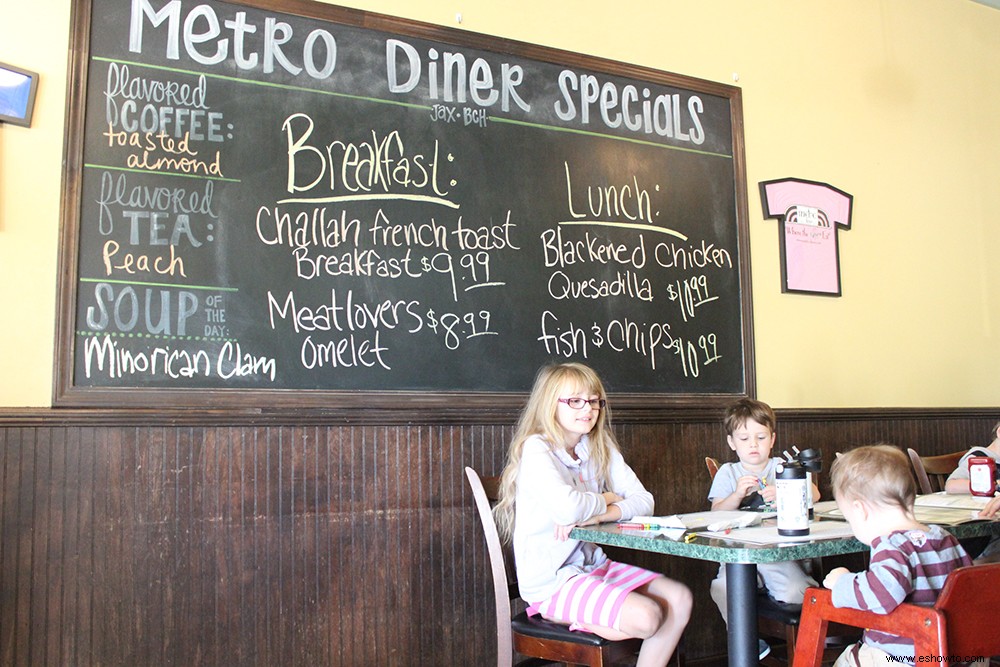 Metro Diner Specials
JAX • BCH
flavored
COFFEE:
toasted
almond
flavored
TEA:
Peach
SOUP OF THE DAY:
Minorican Clam
Breakfast:
Challah french toast
Breakfast $9.99
Meatlovers $8.99
Omelet
Lunch:
Blackened Chicken
Quesadilla $10.99
fish & Chips $10.99
www.eshowtc.com